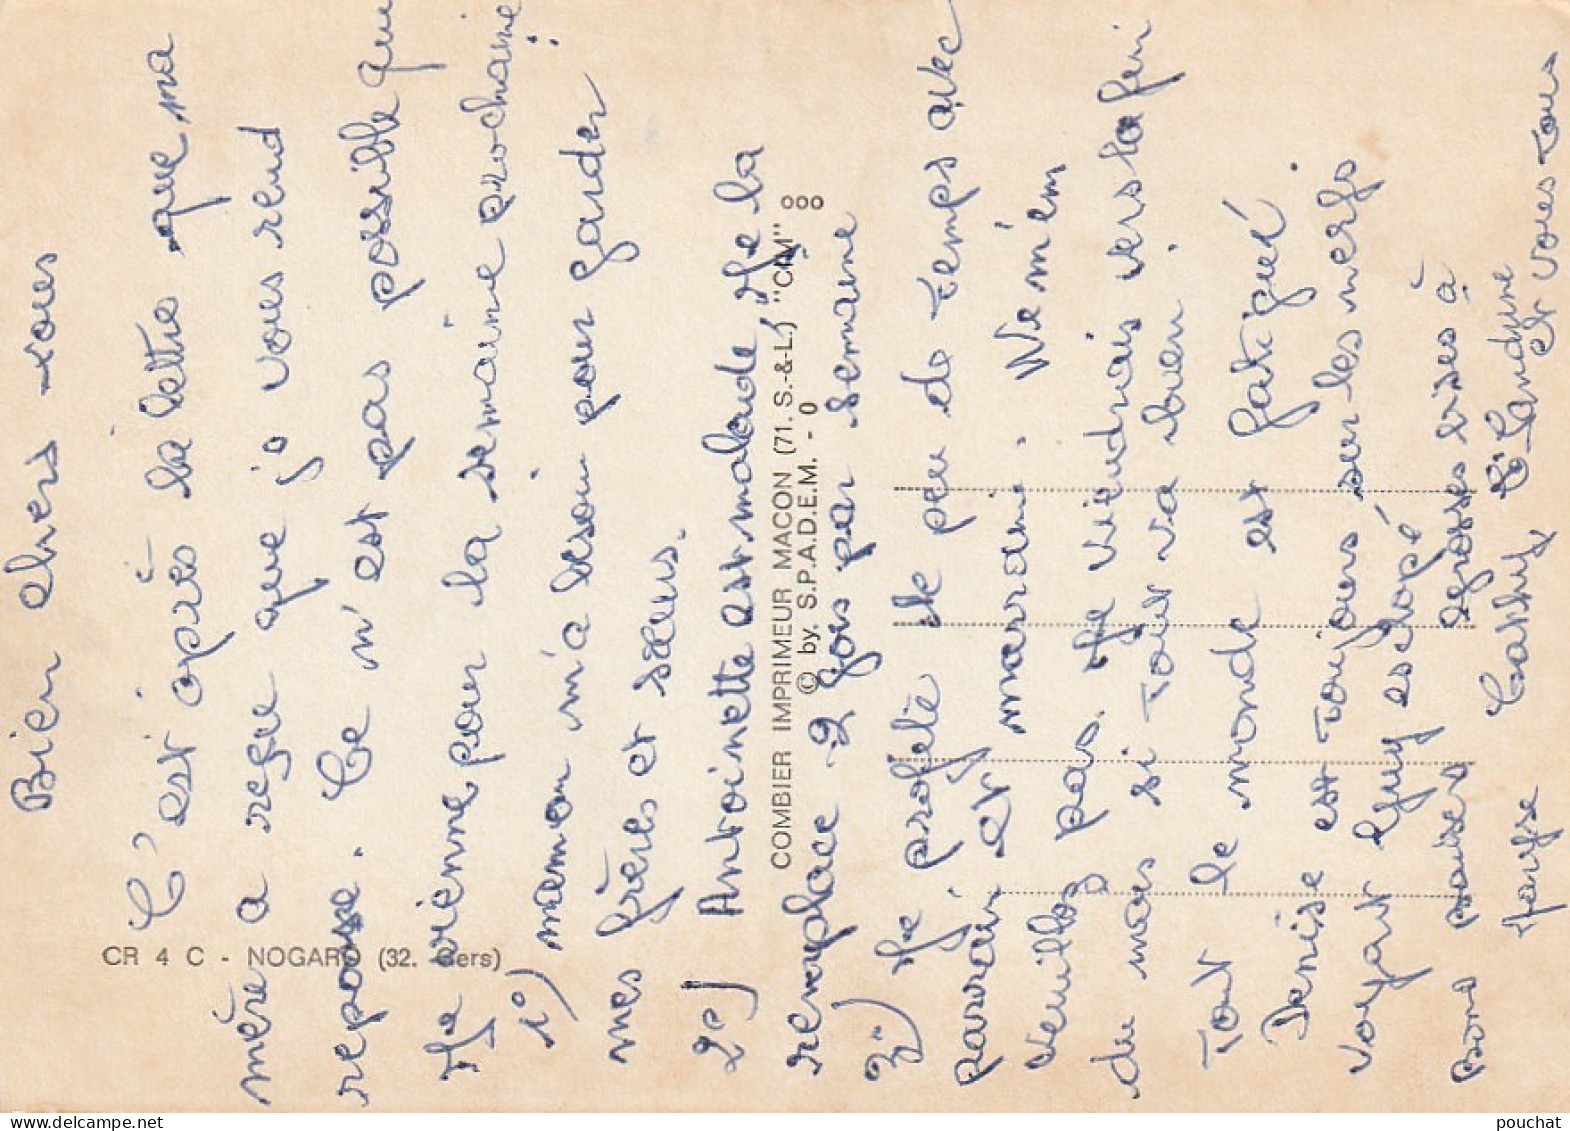 Bien chers tous
C'est après la lettre que ma
mère a reçue que je vous rend
reponse. Ce n'est pas possible que
Je vienne pour la semaine prochaine:
1°) maman m'a besoin pour garder
mes frères et sœurs.
2°) Antoinette est malade, Je la
remplace 2 fois par semaine
3°) Je profite le peu de temps avec
parrain et marraine. Ne m'en
Veuillez pas. Je viendrais vers la fin
du mois si tout va bien.
Tout le monde est fatigué.
Denise est toujours sur les nerfs
voyant Guy eclopé
bons baisers grosses bises à
Cathy Sandrine
et vous tous
CR 4 C - NOGARO (32. Gers)
COMBIER IMPRIMEUR MACON (71. S.-&-L.) "CIM"
© by. S.P.A.D.E.M. - 0
pouchat